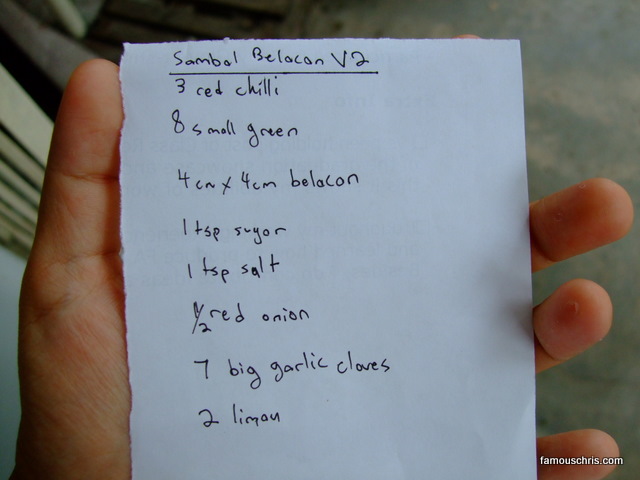 Sambal Belacan V2
3 red chilli
8 small green
4cm x 4cm belacan
1 tsp sugar
1 tsp salt
1/2 red onion
7 big garlic cloves
2 limau
famouschris.com